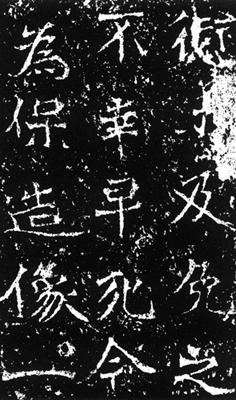 及之
不幸早死今
為保造像一